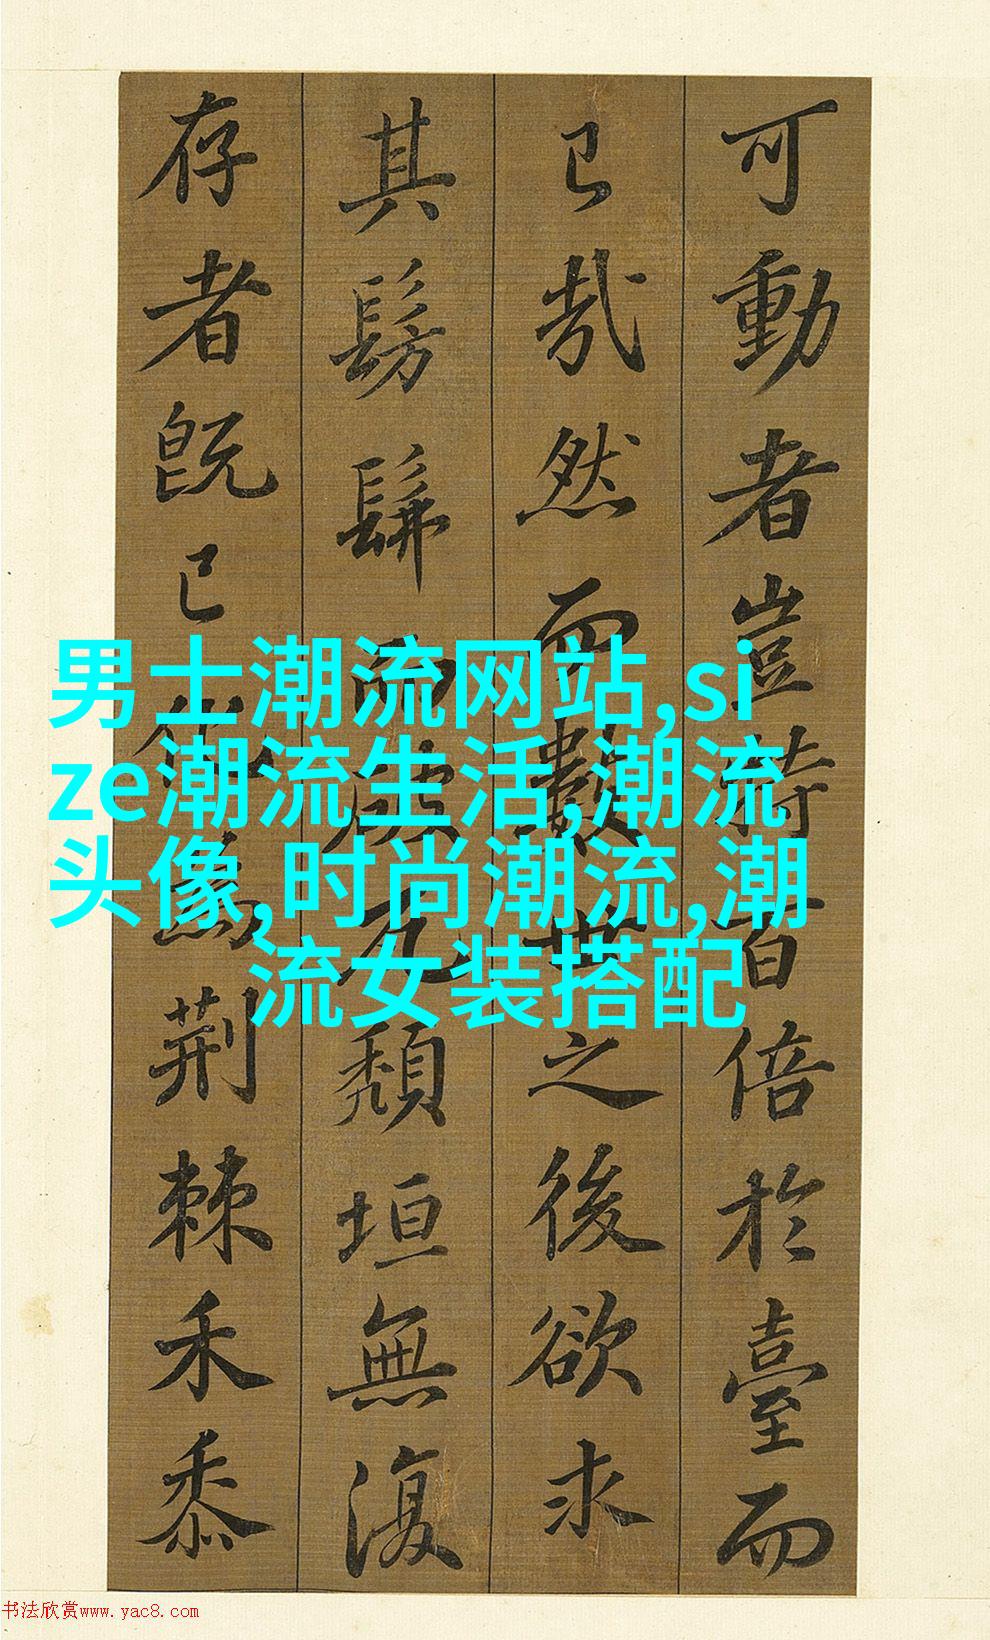 可動者豈特百倍於臺而
已哉然而數世之後欲求
其髣髴而破瓦頹垣無復
存者既已化為荊棘禾黍
男士潮流网站,si
ze潮流生活,潮流
头像,时尚潮流,潮
流女装搭配
书法欣赏www.yac8.com